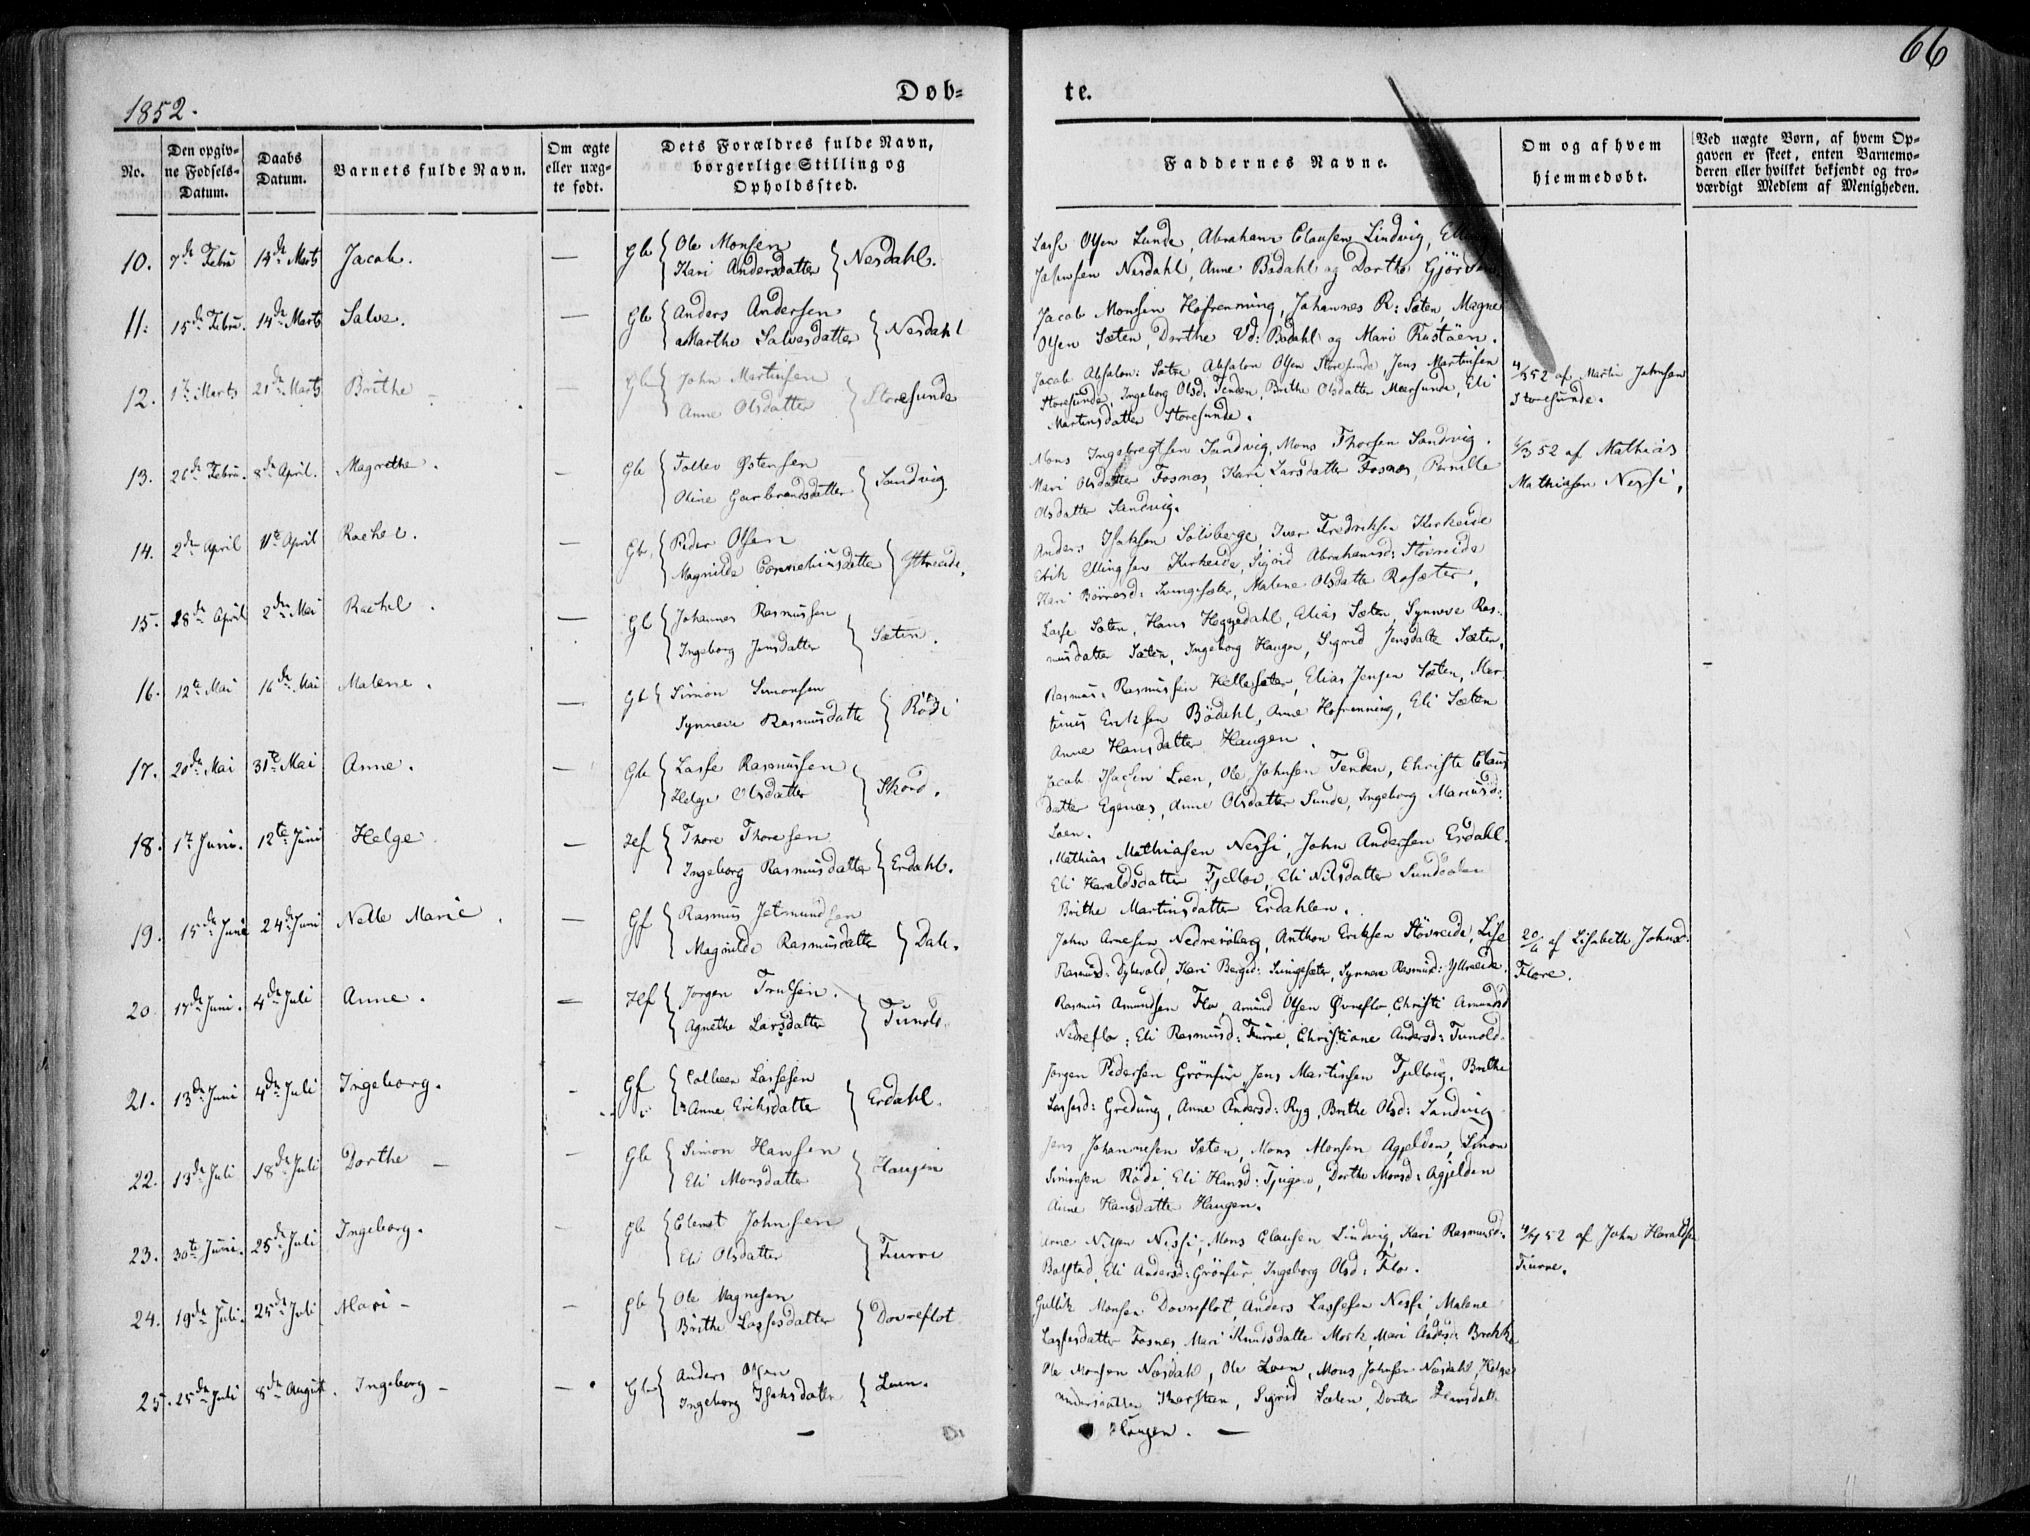 66
1852.
Døb-
te.
No.
Den opgiv-
ne Fødsels-
Datum.
Daabs
Datum.
Barnets fulde Navn.
Om ægte
eller uæg-
te født.
Dets Forældres fulde Navn,
borgerlige Stilling og
Opholdssted.
Faddernes Navne.
Om og af hvem
hjemmedøbt.
Ved uægte Børn, af hvem Op-
gaven er skeet, enten Barnemo-
deren eller hvilket bekjendt og tro-
værdigt Medlem af Menigheden.
10. 7de Febru 14de Marts Jacob. — Gb Ole Monsen
Kari Andersdatter Nesdahl.
Lasse Olsen Sunde, Abraham Clausen Lindvig,
Johnsen Nesdahl, Anne Bødahl og Dorthe
11. 15de Febru. 14de Marts Salve. — Gb Anders Andersen
Marthe Salvesdatter Nesdahl
Jacob Monsen Hofrenning, Johannes R: Sæten, Magne
Olsen Sæten, Dorthe Bødahl og Mari Rustøen.
12. 1te Marts 21de Marts Brithe — Gb John Martinsen
Anne Olsdatter Storesunde
Jacob Absalon: Sætre Absalon Olsen Storesunde, Jens Martinsen
Storesunde, Ingeborg Olsd: Tenden, Brithe Olsdatter Meersunde, Eli
Martinsdatter Storesunde.
4/3 52 af Martin Johnsen
Storesunde.
13. 26de Febru. 8de April. Magrethe. — Gb Tollev Østensen
Oline Garbrandsdatter Sandvig.
Mons Ingebregtsen Sandvig, Mons Thorsen Sandvig.
Mari Olsdatter Fosnæs, Kari Larsdatter Fosnæs, Pernille
Olsdatter Sandvig.
6/3 52 af Mathias
Mathiasen Nessi,
14. 2de April 11te April Rachel. — Gb. Peder Olsen
Magnilde Corneliusdatter Ytreeide.
Anders Isaksen Solvberge Iver Fredriksen Kirkeide
Erik Ellingsen Kirkeide, Sigrid Abrahamsd: Støvreide
Kari Svingesæter, Malene Olsdatter Rosæter.
15. 18de April 2den Mai Rachel. — Gb Johannes Rasmussen
Ingeborg Jensdatter Sæten.
Lasse Sæten, Hans Heggedahl, Elias Sæten, Synneve Ras-
musdatter Sæten, Ingeborg Haugen, Sigrid Jensdatter Sæten.
16. 12te Mai 16de Mai Malene. — Gb Simon Simonsen
Synneve Rasmusdatter Rødi
Rasmus Rasmussen Hellesæter, Elias Jensen Sæten, Mar-
tinus Eriksen Bødahl, Anne Hofrenning, Eli Sæten
Anne Hansdatter Haugen.
17. 20de Mai 31te Mai Anne. — Gb Lasse Rasmussen
Helge Olsdatter Skaad.
Jacob Isacsen Loen, Ole Johnsen Tenden, Christi Claus
datter Egenæs, Anne Olsdatter Sunde, Ingeborg Mariusd:
Loen.
18. 1te Juni. 12te Juni Helge. — Hef Thore Thoresen
Ingeborg Rasmusdatter Erdahl.
Mathias Mathiasen Nessi, John Andersen Erdahl.
Eli Haraldsdatter Fjellov, Eli Nilsdatter
Brithe Martinsdatter Erdahlen.
19. 15de Juni 24de Juni Nelle Marie. — Gf Rasmus Jetmundsen
Magnilde Rasmusdatter Dale.
John Arnesen Nedrerøberg, Anthon Eriksen Støvreide, Lise
Rasmusd: Dybvold, Kari Svingesæter, Synneve Rasmusd: Ytreeide.
20/6 af Lisabeth Johnsd:
Flore.
20. 17de Juni. 4de Juli Anne. — Hef Jørgen Trulsen.
Agnethe Larsdatter Tunold.
Rasmus Amundsen Flo Amund Olsen Øvreflo, Christi Amundsd
Nedreflo: Eli Rasmusd: Fiurre, Christiane Andersd: Tunold.
21. 13de Juni 4de Juli Ingeborg. - Gf Colbeen Lassesen
Anne Eriksdatter Erdahl.
Jørgen Pedersen Grønfur, Jens Martinsen Tjelloug. Brithe
Lassesd: Greduing, Anne Andersd: Ryg, Brithe Olsd: Sandvig
22. 13de Juli 18de Juli Dorthe — Gb Simon Hansen
Eli Monsdatter Haugen
Jens Johannesen Sæten, Mons Monsen Agjelden, Simon
Simonsen Rødi, Eli Hansd: Tjugen, Dorthe Monsd: Agjelden
Anne Hansdatter Haugen.
23. 30te Juni. 25de Juli Ingeborg. - Gb Clemet Johnsen
Eli Olsdatter Fiurre
Arne Nessi, Mons Clausen Lindvig, Kari Rasmusd:
Bolstad, Eli Andersd: Grønfur, Ingeborg Olsd: Flo.
4/7 52 af John Haraldsen
Fiurre.
24. 19de Juli. 25de Juli Mari - — Gb Ole Magnesen
Brithe Lassesdatter Dovreflot
Gullik Monsen Dovreflot, Anders Lassesen Nessi, Malene
Lassesdatter Fosnæs, Mari Knudsdatter Mork, Mari Andersd: Brekke
25. 25de Juli 8de August. Ingeborg - — Gb Anders Olsen
Ingeborg Isaksdatter Loen.
Ole Monsen Næsdahl, Ole Loen, Mons Johnsen Næsdahl, Helge
Andersdatter, Sigrid Sæten, Dorthe Hansdatter
Haugen. —